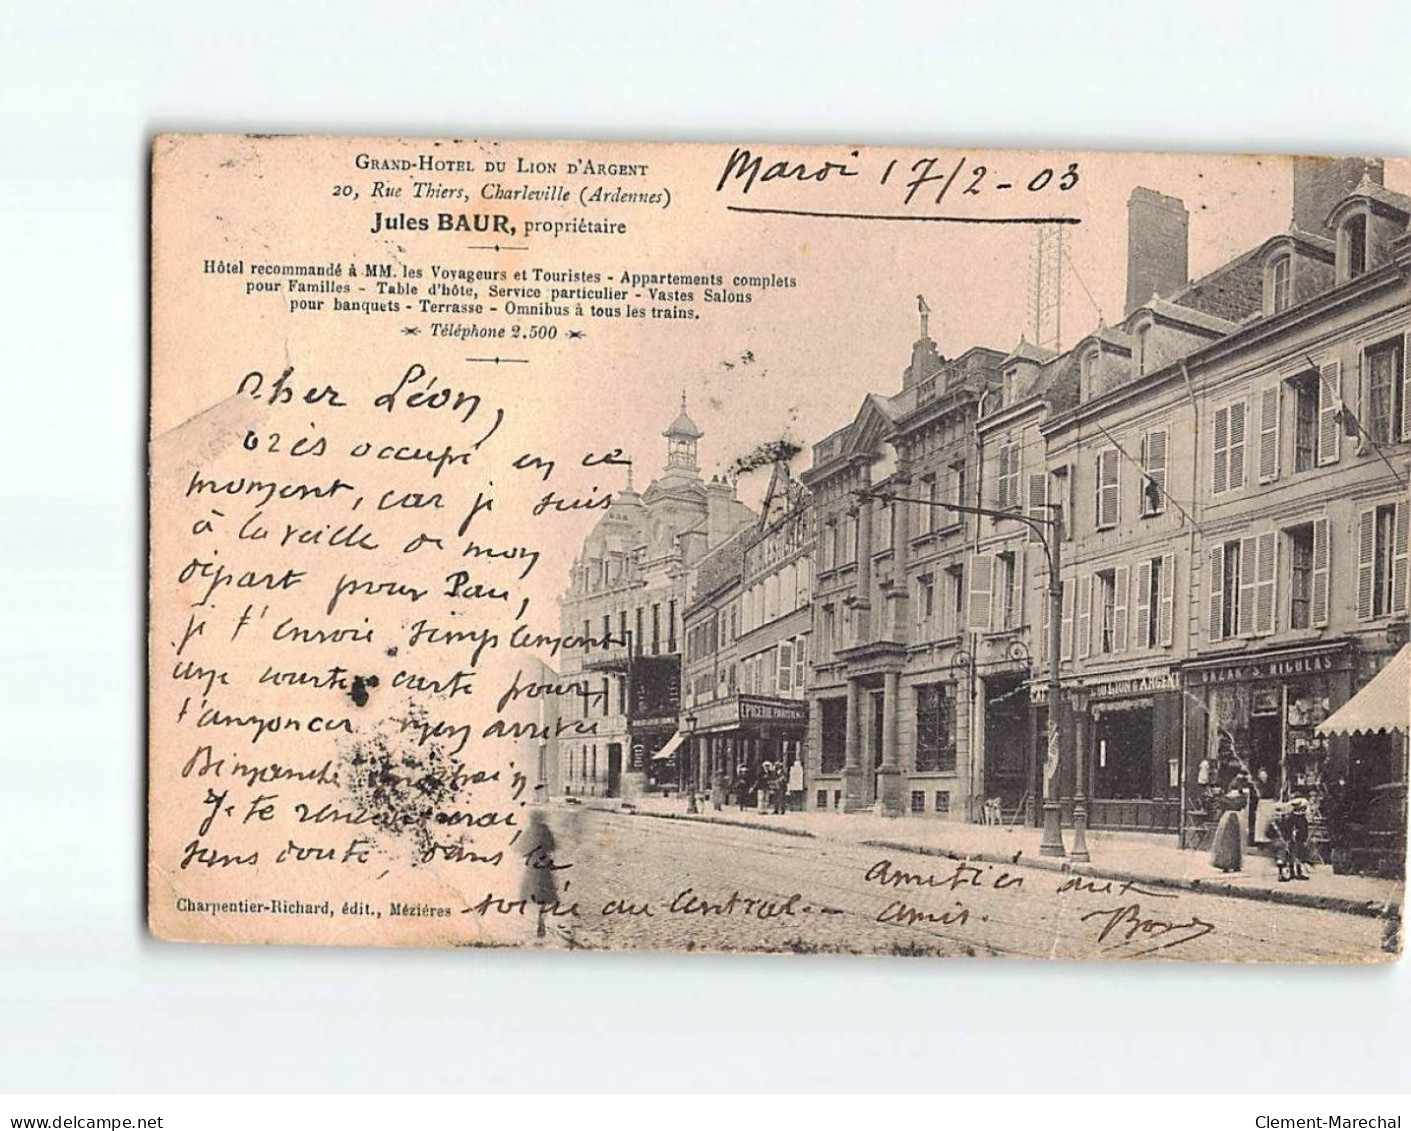 GRAND-HOTEL DU LION D'ARGENT
20, Rue Thiers, Charleville (Ardennes)
Jules BAUR, propriétaire
Hôtel recommandé à MM. les Voyageurs et Touristes - Appartements complets
pour Familles - Table d'hôte, Service particulier - Vastes Salons
pour banquets - Terrasse - Omnibus à tous les trains.
Téléphone 2.500
Mardi 17/2-03
Cher Léon,
très occupé en ce
moment, car je suis
à la veille de mon
départ pour Pau,
je t'envoie simplement
une courte carte pour
t'annoncer mon arrivée
Dimanche prochain
Je te rencontrerai,
sans doute, dans la
soirée au Central. -
Amitiés aux
amis.
EPICERIE PARISIEN
AU LION D'ARGENT
BAZAR ST NICOLAS
Charpentier-Richard, édit., Mézières
delcampe.net
Clement-Marechal